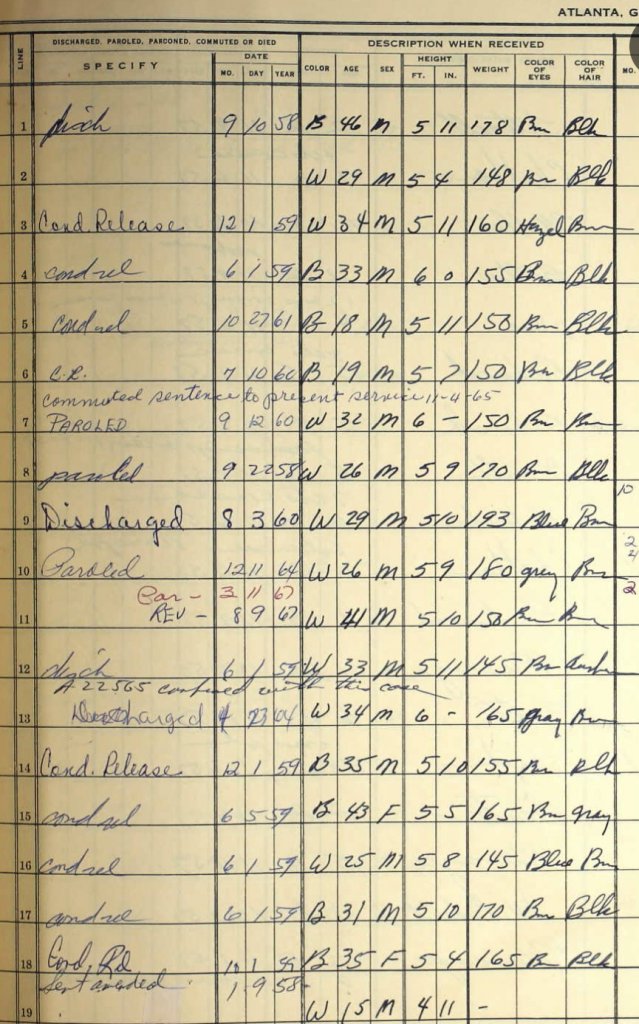 ATLANTA, G
DISCHARGED, PAROLED, PARDONED, COMMUTED OR DIED DESCRIPTION WHEN RECEIVED
LINE SPECIFY DATE MO. DAY YEAR COLOR AGE SEX HEIGHT FT. IN. WEIGHT COLOR OF EYES COLOR OF HAIR MO.
1 disch 9 10 58 B 46 M 5 11 178 Bn Blk
2 W 29 M 5 4 148 Bn Blk
3 Cond. Release 12 1 59 W 34 M 5 11 160 Hazel Brn
4 cond rel 6 1 59 B 33 M 6 0 155 Brn Blk
5 cond rel 10 27 61 B 18 M 5 11 150 Brn Blk
6 C.R. 7 10 60 B 19 M 5 7 150 Brn Blk
commuted sentence to present service 11-4-65
7 PAROLED 9 12 60 W 32 M 6 - 150 Brn Brn
8 paroled 9 22 58 W 26 M 5 9 170 Bn Blk
10
9 Discharged 8 3 60 W 29 M 5 10 193 Blue Brn
10 Paroled 12 11 64 W 26 M 5 9 180 grey Brn
Par - 3 11 67
REV - 8 9 67
11 W 41 M 5 10 150 Brn Brn
12 disch 6 1 59 W 33 M 5 11 145 Bn
A 22565 confused with this case
13 Discharged 4 23 64 W 34 M 6 - 165 gray Brn
14 Cond. Release 12 1 59 B 35 M 5 10 155 Bn Blk
15 cond rel 6 5 59 B 43 F 5 5 165 Bn gray
16 cond rel 6 1 59 W 25 M 5 8 145 Blue Brn
17 cond rel 6 1 59 B 31 M 5 10 170 Bn Blk
18 Cond. Rel 10 1 59 B 35 F 5 4 165 B Blk
Sent amended 1 9 58 -
19 W 15 M 4 11 -